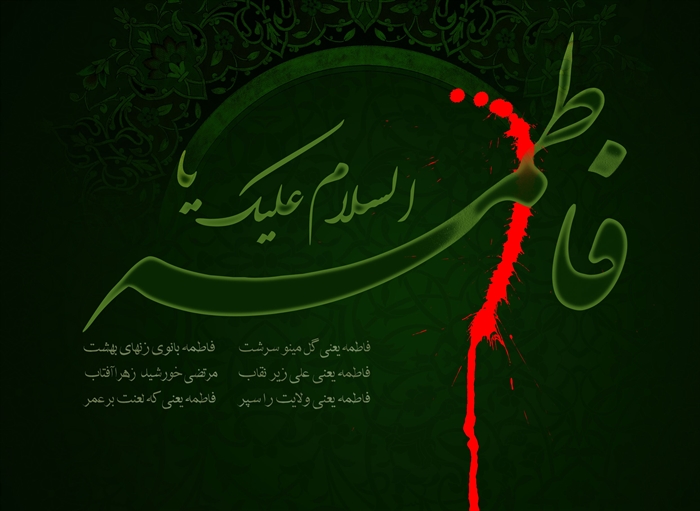 السلام علیک یا
فاطمه
فاطمه یعنی گل مینو سرشت فاطمه بانوی زنهای بهشت
فاطمه یعنی علی زیر نقاب مرتضی خورشید زهرا آفتاب
فاطمه یعنی ولایت را سپر فاطمه یعنی که لعنت بر عمر